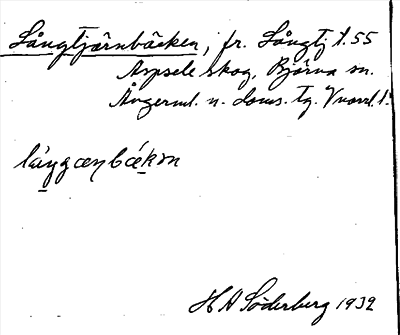 Långtjärnbäcken, fr. Långtj. 1.55
Aspsele skog, Björna sn.
Ångerml. n. doms. tg. Vnorrl. l.
låŋgæŋbækɘn
H A Söderberg 1932